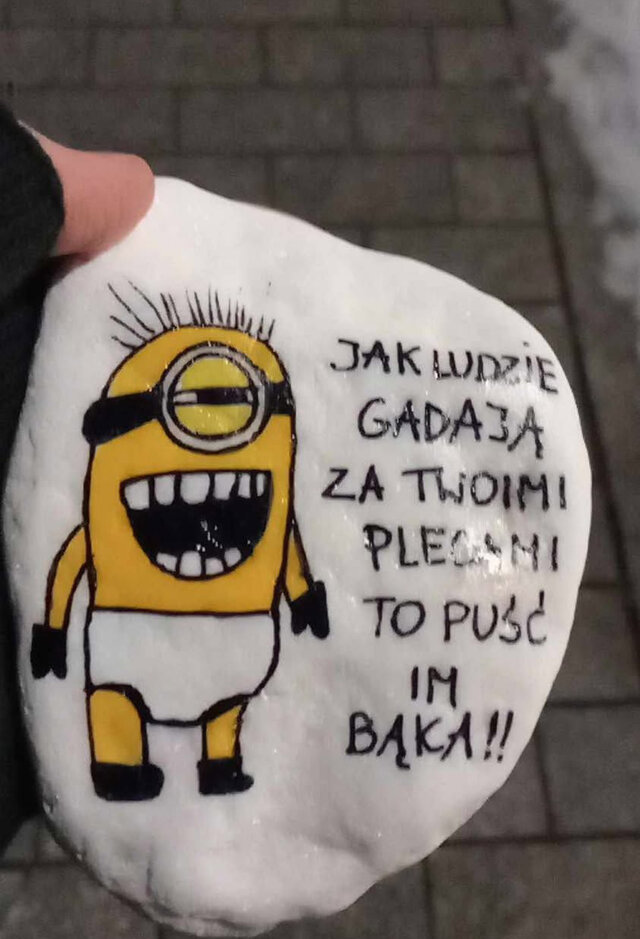 JAK LUDZIE
GADAJĄ
ZA TWOIMI
PLECAMI
TO PUŚĆ
IM
BĄKA!!